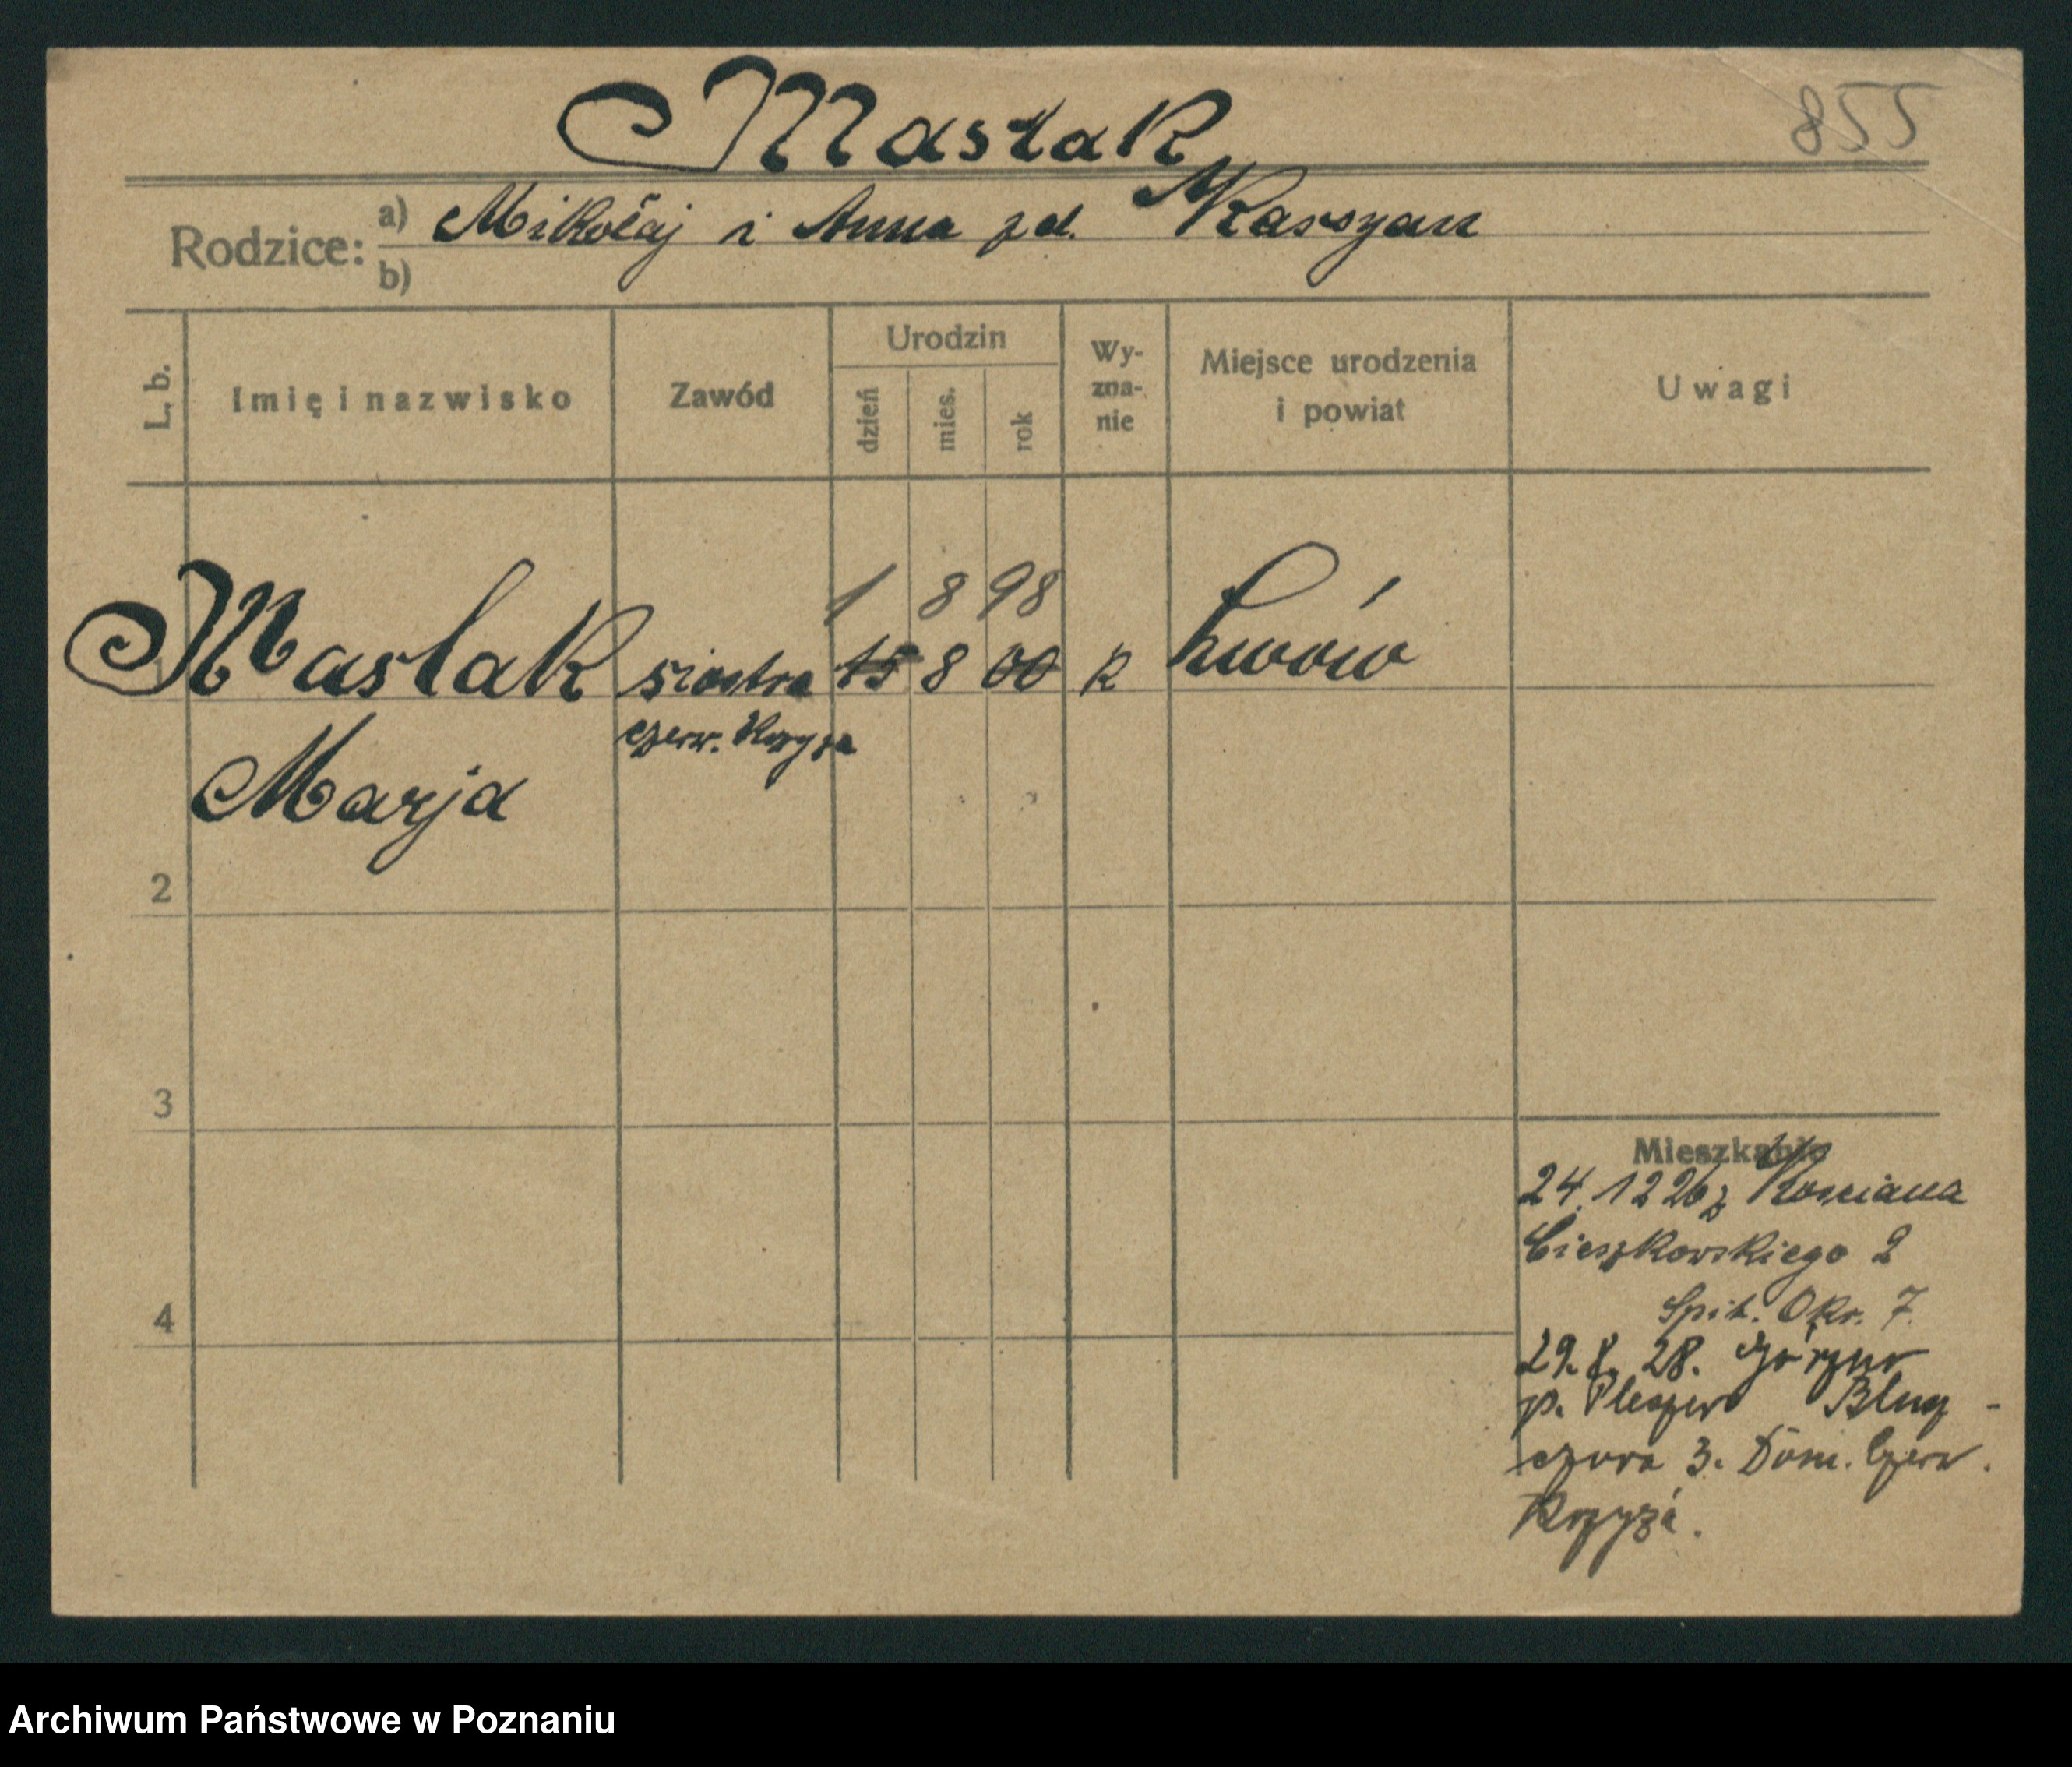 Masłak
855
Rodzice: a) Mikołaj i Anna zd. Karszan
b)
L. b. Imię i nazwisko Zawód Urodzin dzień mies. rok Wy-zna-nie Miejsce urodzenia i powiat Uwagi
1 8 98
1 Masłak siostra 15 8 00 R Lwów
czerw. Krzyża
Marja
2
3
4
Mieszkanie
24.12 26 z Kościana
Cieszkowskiego 2
Szpit. Okr. 7.
29.8. 28. Górzno
p. Pleszew
czora 3. Dom. Czerw.
Krzyża.
Archiwum Państwowe w Poznaniu